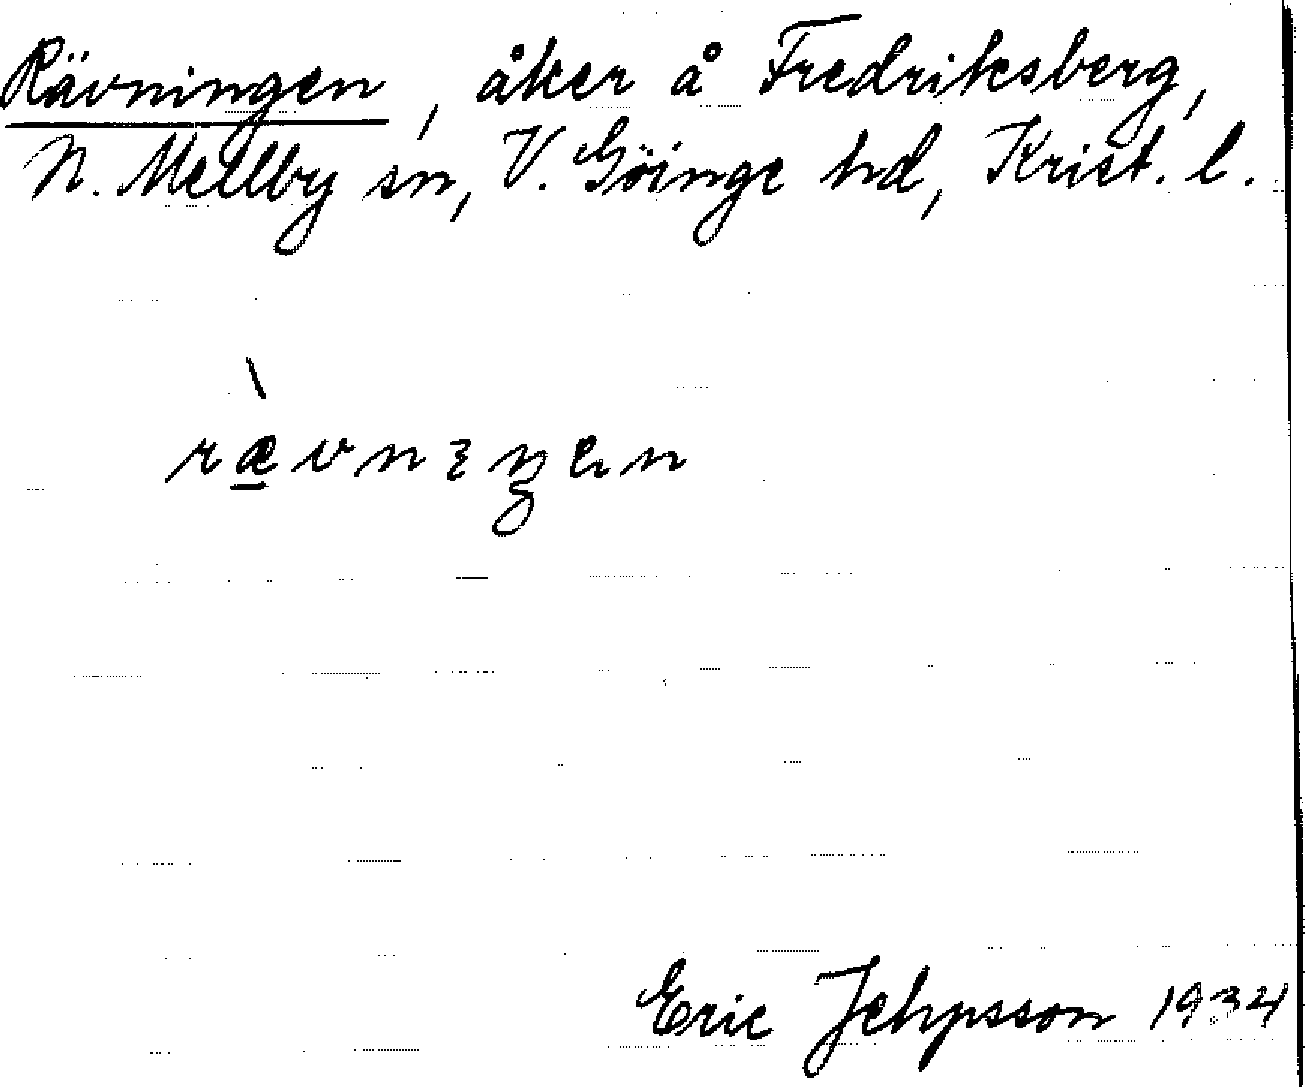 Rävningen, åker å Fredriksberg,
N. Mellby sn, V. Göinge hd, Krist. l.
rævnɛŋen
Eric Jehpsson 1934